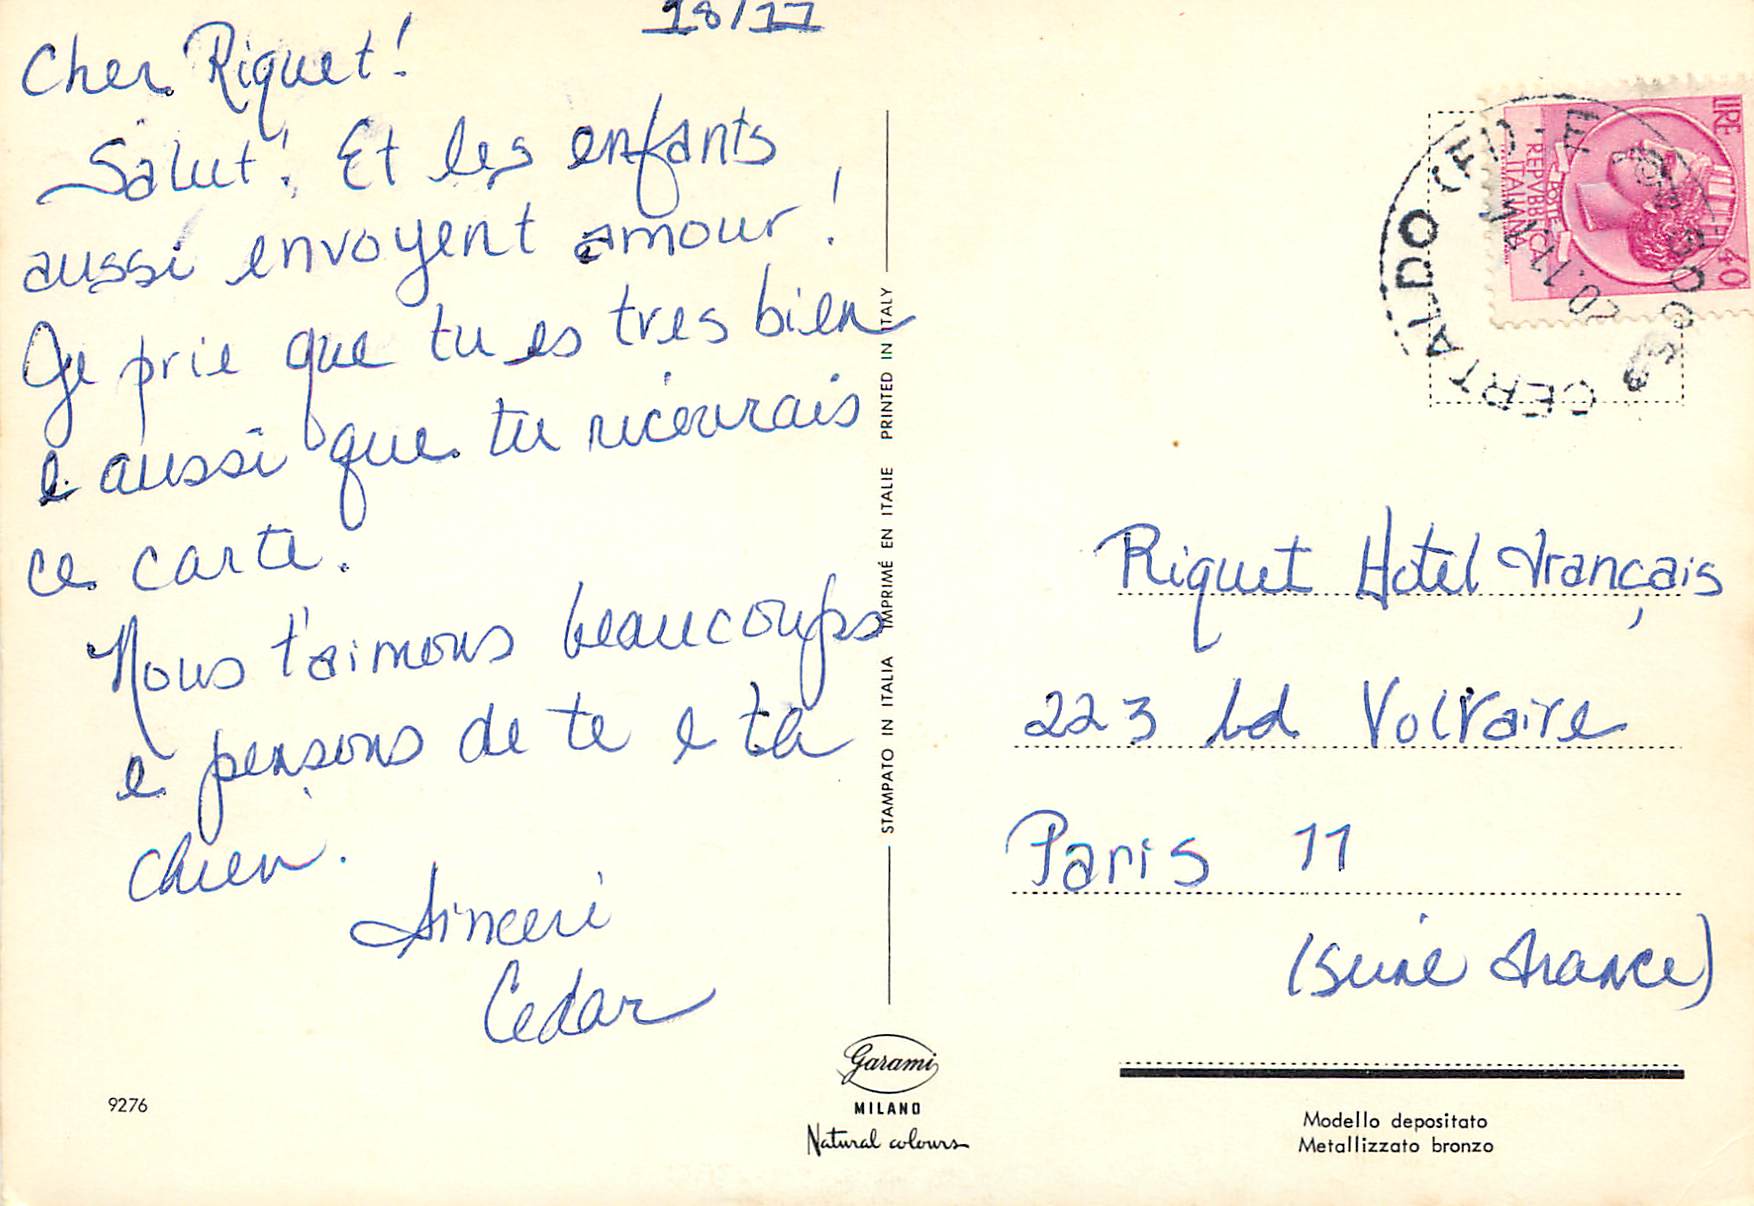 18/11
Cher Riquet!
Salut! Et les enfants
aussi envoyent amour!
Je prie que tu es tres bien
e aussi que tu ricevrais
ce carte.
Nous t'aimons beaucoups
e pensons de te e ta
chien.
Sinceri
Cedar
9276
STAMPATO IN ITALIA IMPRIMÉ EN ITALIE PRINTED IN ITALY
Garami
MILANO
Natural colours
LIRE 40
POSTE
REPVBBLICA
ITALIANA
CERTALDO (FI)
20.11
Riquet Hotel Français
223 bd Voltaire
Paris 11
(Seine France)
Modello depositato
Metallizzato bronzo